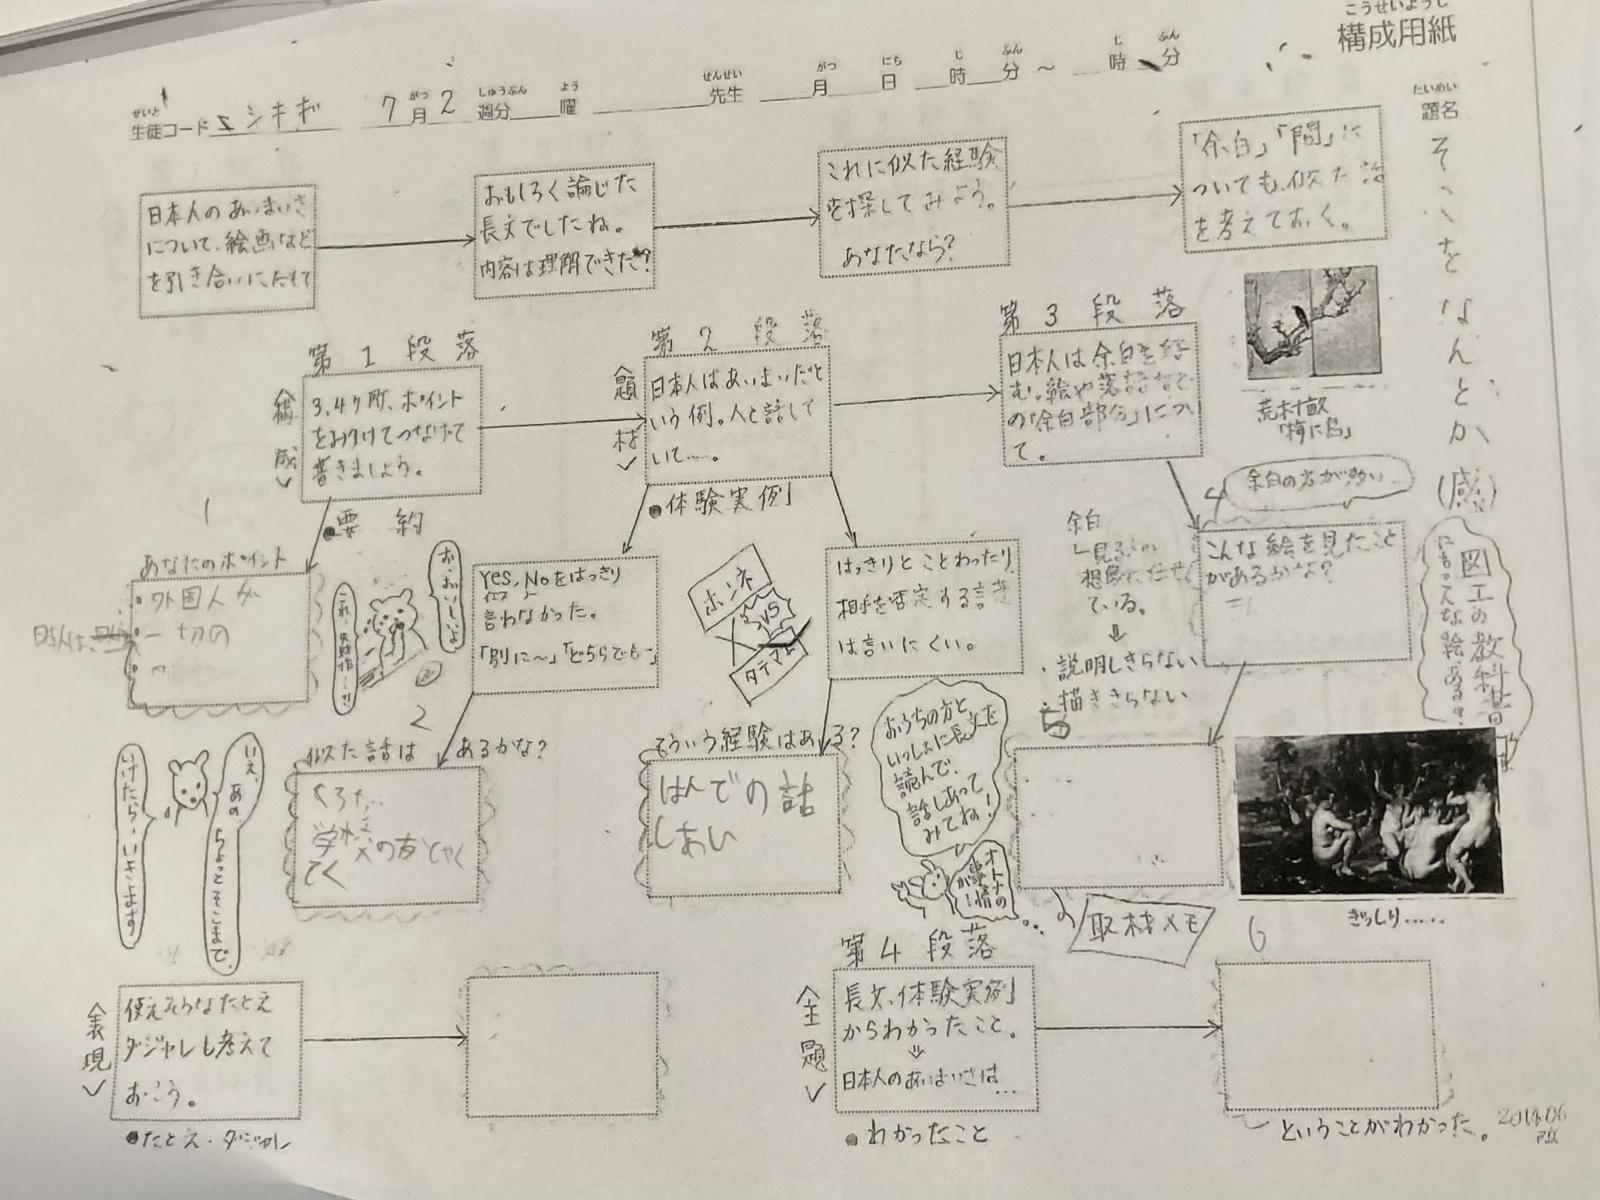 こうせいようし
構成用紙
たいめい
題名
そこをなんとか(感)
せいと
生徒コード シキギ 7月2週分 曜 先生 月 日 時 分 〜 時 分
日本人のあいまいさ
について、絵画など
を引き合いに
おもしろく論じた
長文でしたね。
内容は理解できた?
これに似た経験
を探してみよう。
あなたなら?
「余白」「間」に
ついても、似た話
を考えておく。
荒木村重
「梅に烏」
第1段落
<構成>
3,4ヶ所、ポイント
をおさえてつなげて
書きましょう。
●要約
第2段落
<題材>
日本人はあいまいだと
いう例。人と話して
いて…。
●体験実例
第3段落
日本人は余白を好
む。絵や落語など
の「余白部分」につい
て。
余白の方が多い
あなたのポイント
・外国人が
・一切の
おいしいよ
これ、失敗作…?!
Yes, Noをはっきり
言わなかった。
「別に〜」「どちらでも…」
ホンネ
VS
タテマエ
はっきりとことわったり
相手を否定する言葉
は言いにくい。
余白
想像に任せ
ている。
⇓
・説明しきらない
・描ききらない
こんな絵を見たこと
があるかな?
図工の教科書
にもこんな絵、ある?
いえ、あの、ちょっとそこまで。
いけたら、いきます
2
似た話はあるかな?
学校の友
そういう経験はある?
はんでの話
しあい
おうちの方と
いっしょに長文を
読んで、
話しあって
みてね!
オトナの
事情
が…!
5
取材メモ
ぎっしり……
6
<表現>
使えそうなたとえ
ダジャレも考えて
おこう。
●たとえ・ダジャレ
第4段落
<主題>
長文、体験実例
からわかったこと。
⇓
日本人のあいまいさは…
●わかったこと
ということがわかった。